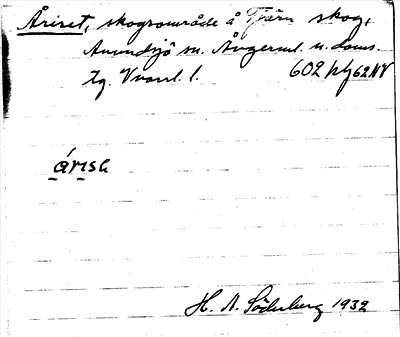 Åriset, skogsområde å Tjärn skog,
Anundsjö sn. Ångerml. n. doms.
tg. 602 62NV
árısɛ
H. A. Söderberg 1932